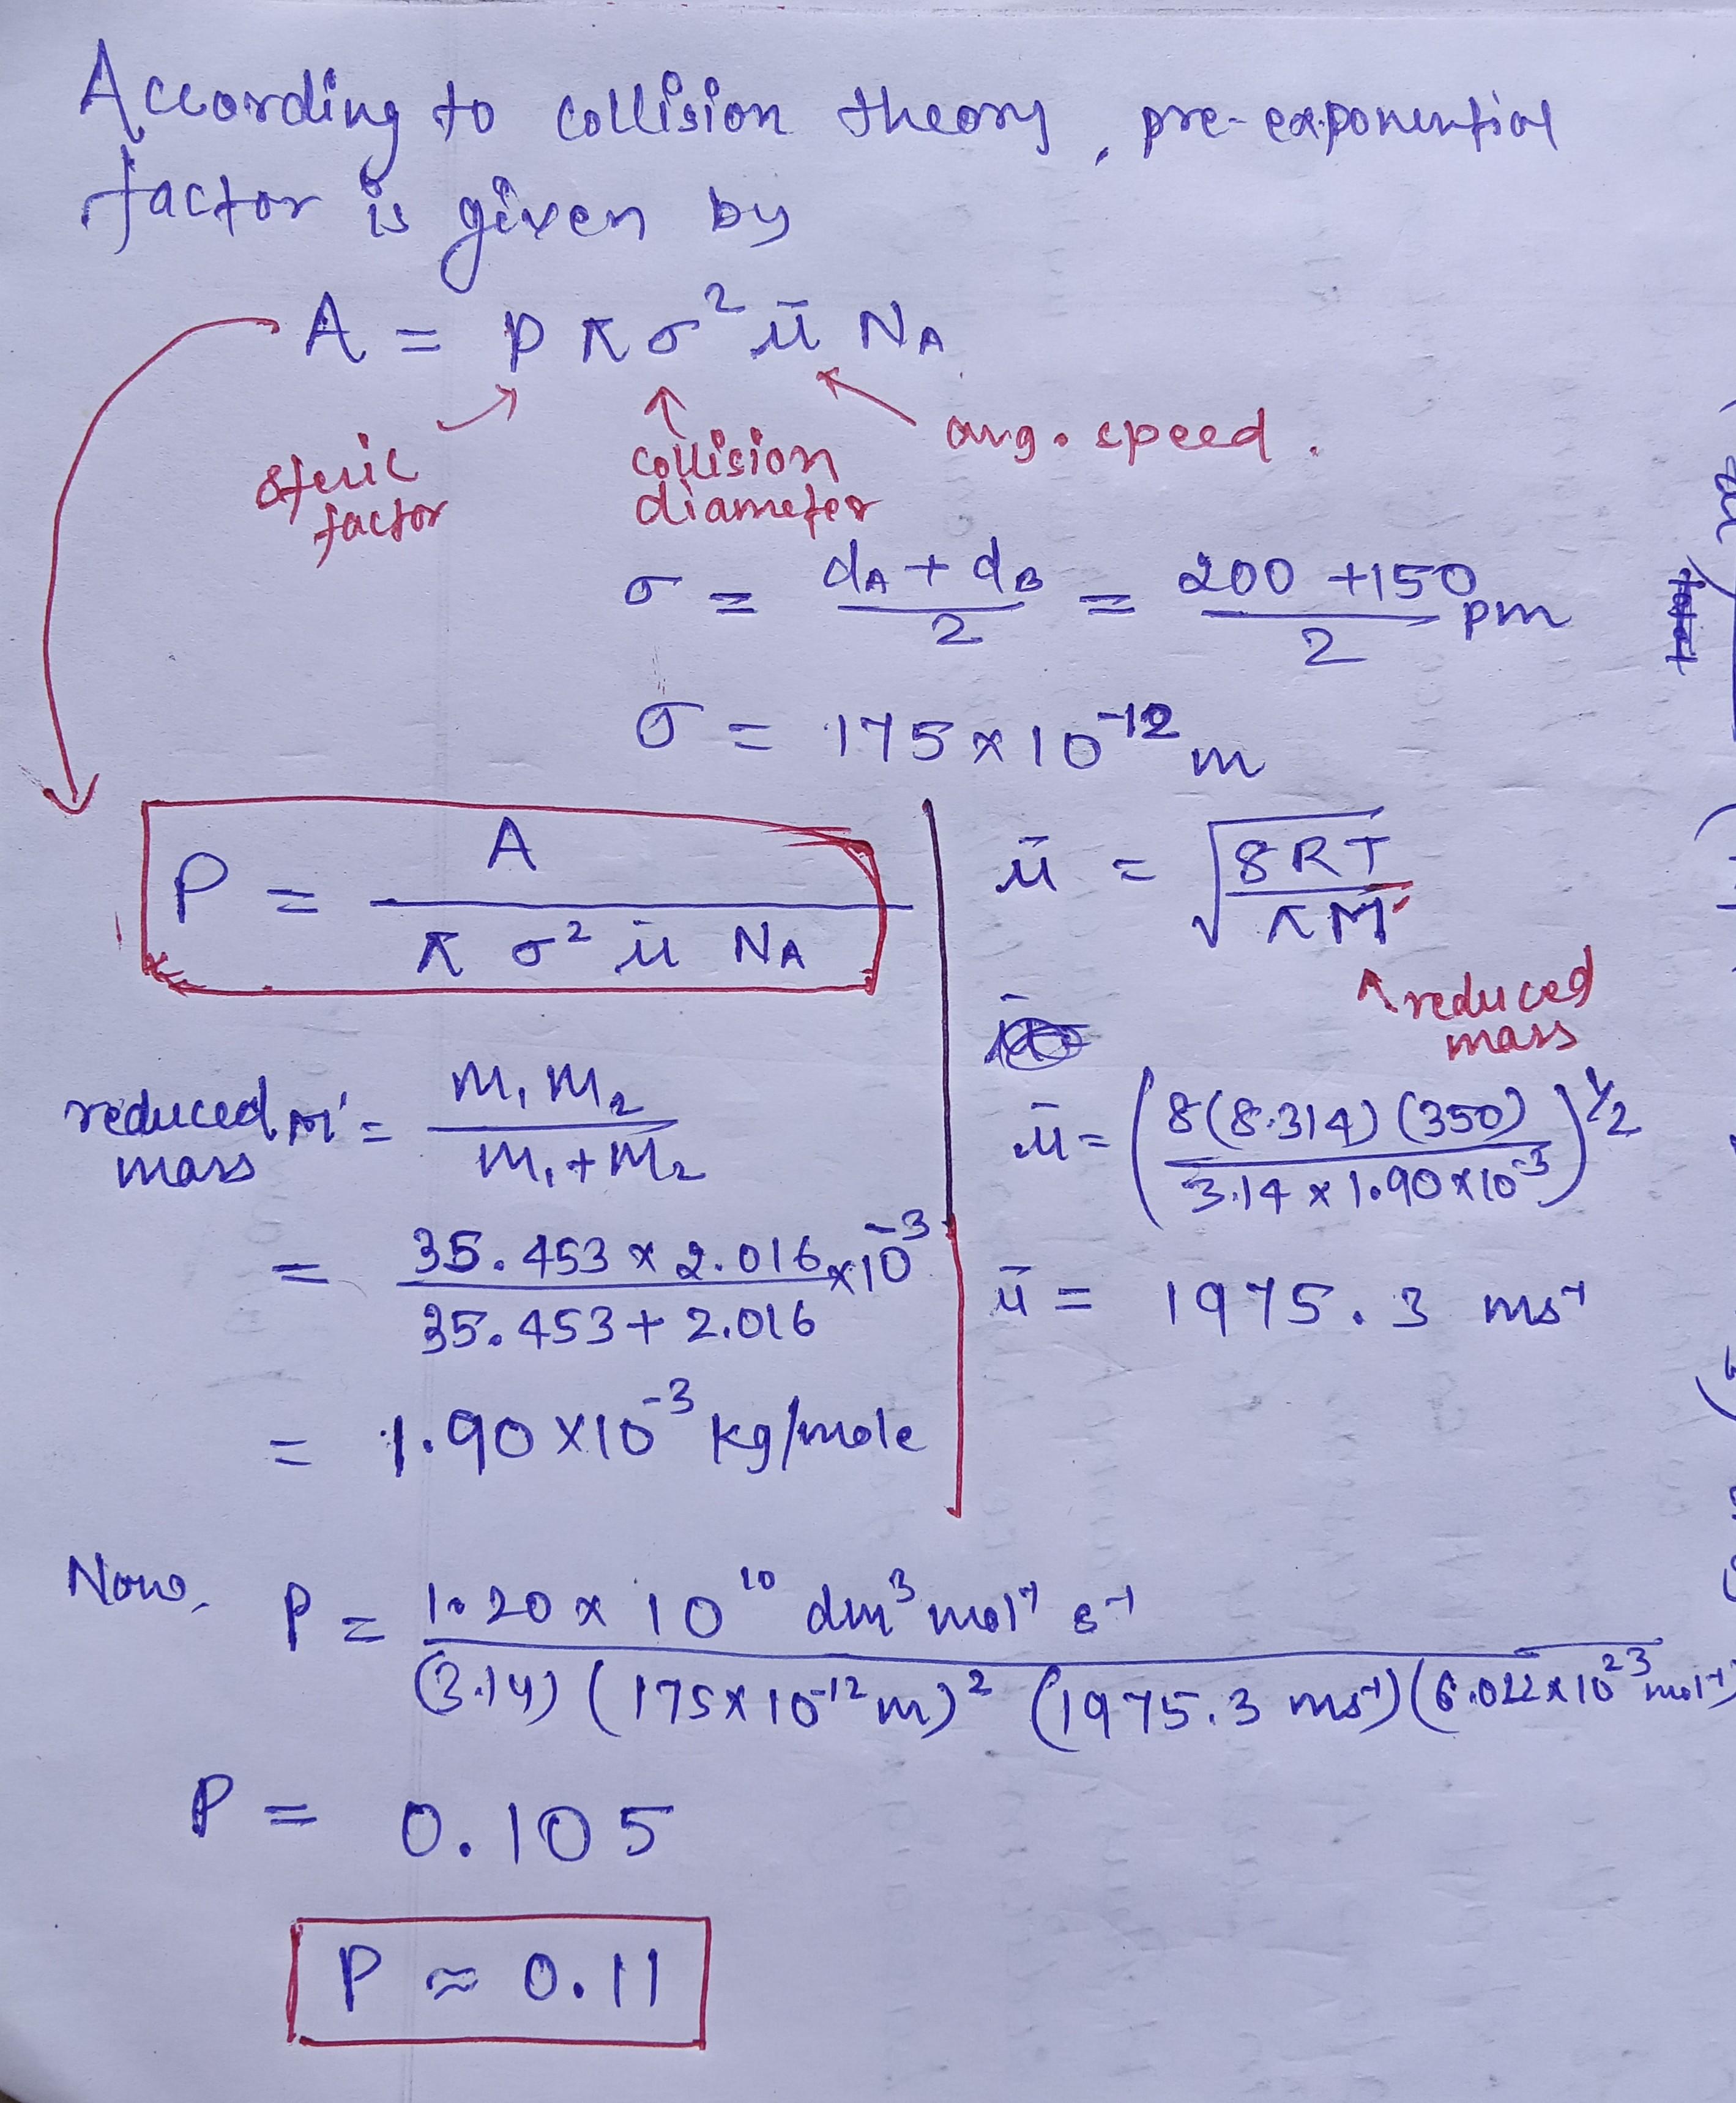 According to collision theory, pre-exponential
factor is given by
A = p π σ² ū N_A
steric
factor
collision
diameter
avg. speed.
σ = (d_A + d_B)/2 = (200 + 150)/2 pm
σ = 175 × 10⁻¹² m
P = A/(π σ² ū N_A)
reduced mass M' = m₁m₂/(m₁+m₂)
= (35.453 × 2.016 × 10⁻³)/(35.453 + 2.016)
= 1.90 × 10⁻³ kg/mole
ū = √(8RT/πM')
reduced
mass
ū = (8(8.314)(350)/(3.14 × 1.90 × 10⁻³))^½
ū = 1975.3 ms⁻¹
Now, P = (1.20 × 10¹⁰ dm³ mol⁻¹ s⁻¹)/((3.14)(175 × 10⁻¹² m)² (1975.3 ms⁻¹)(6.022 × 10²³ mol⁻¹))
P = 0.105
P ≈ 0.11